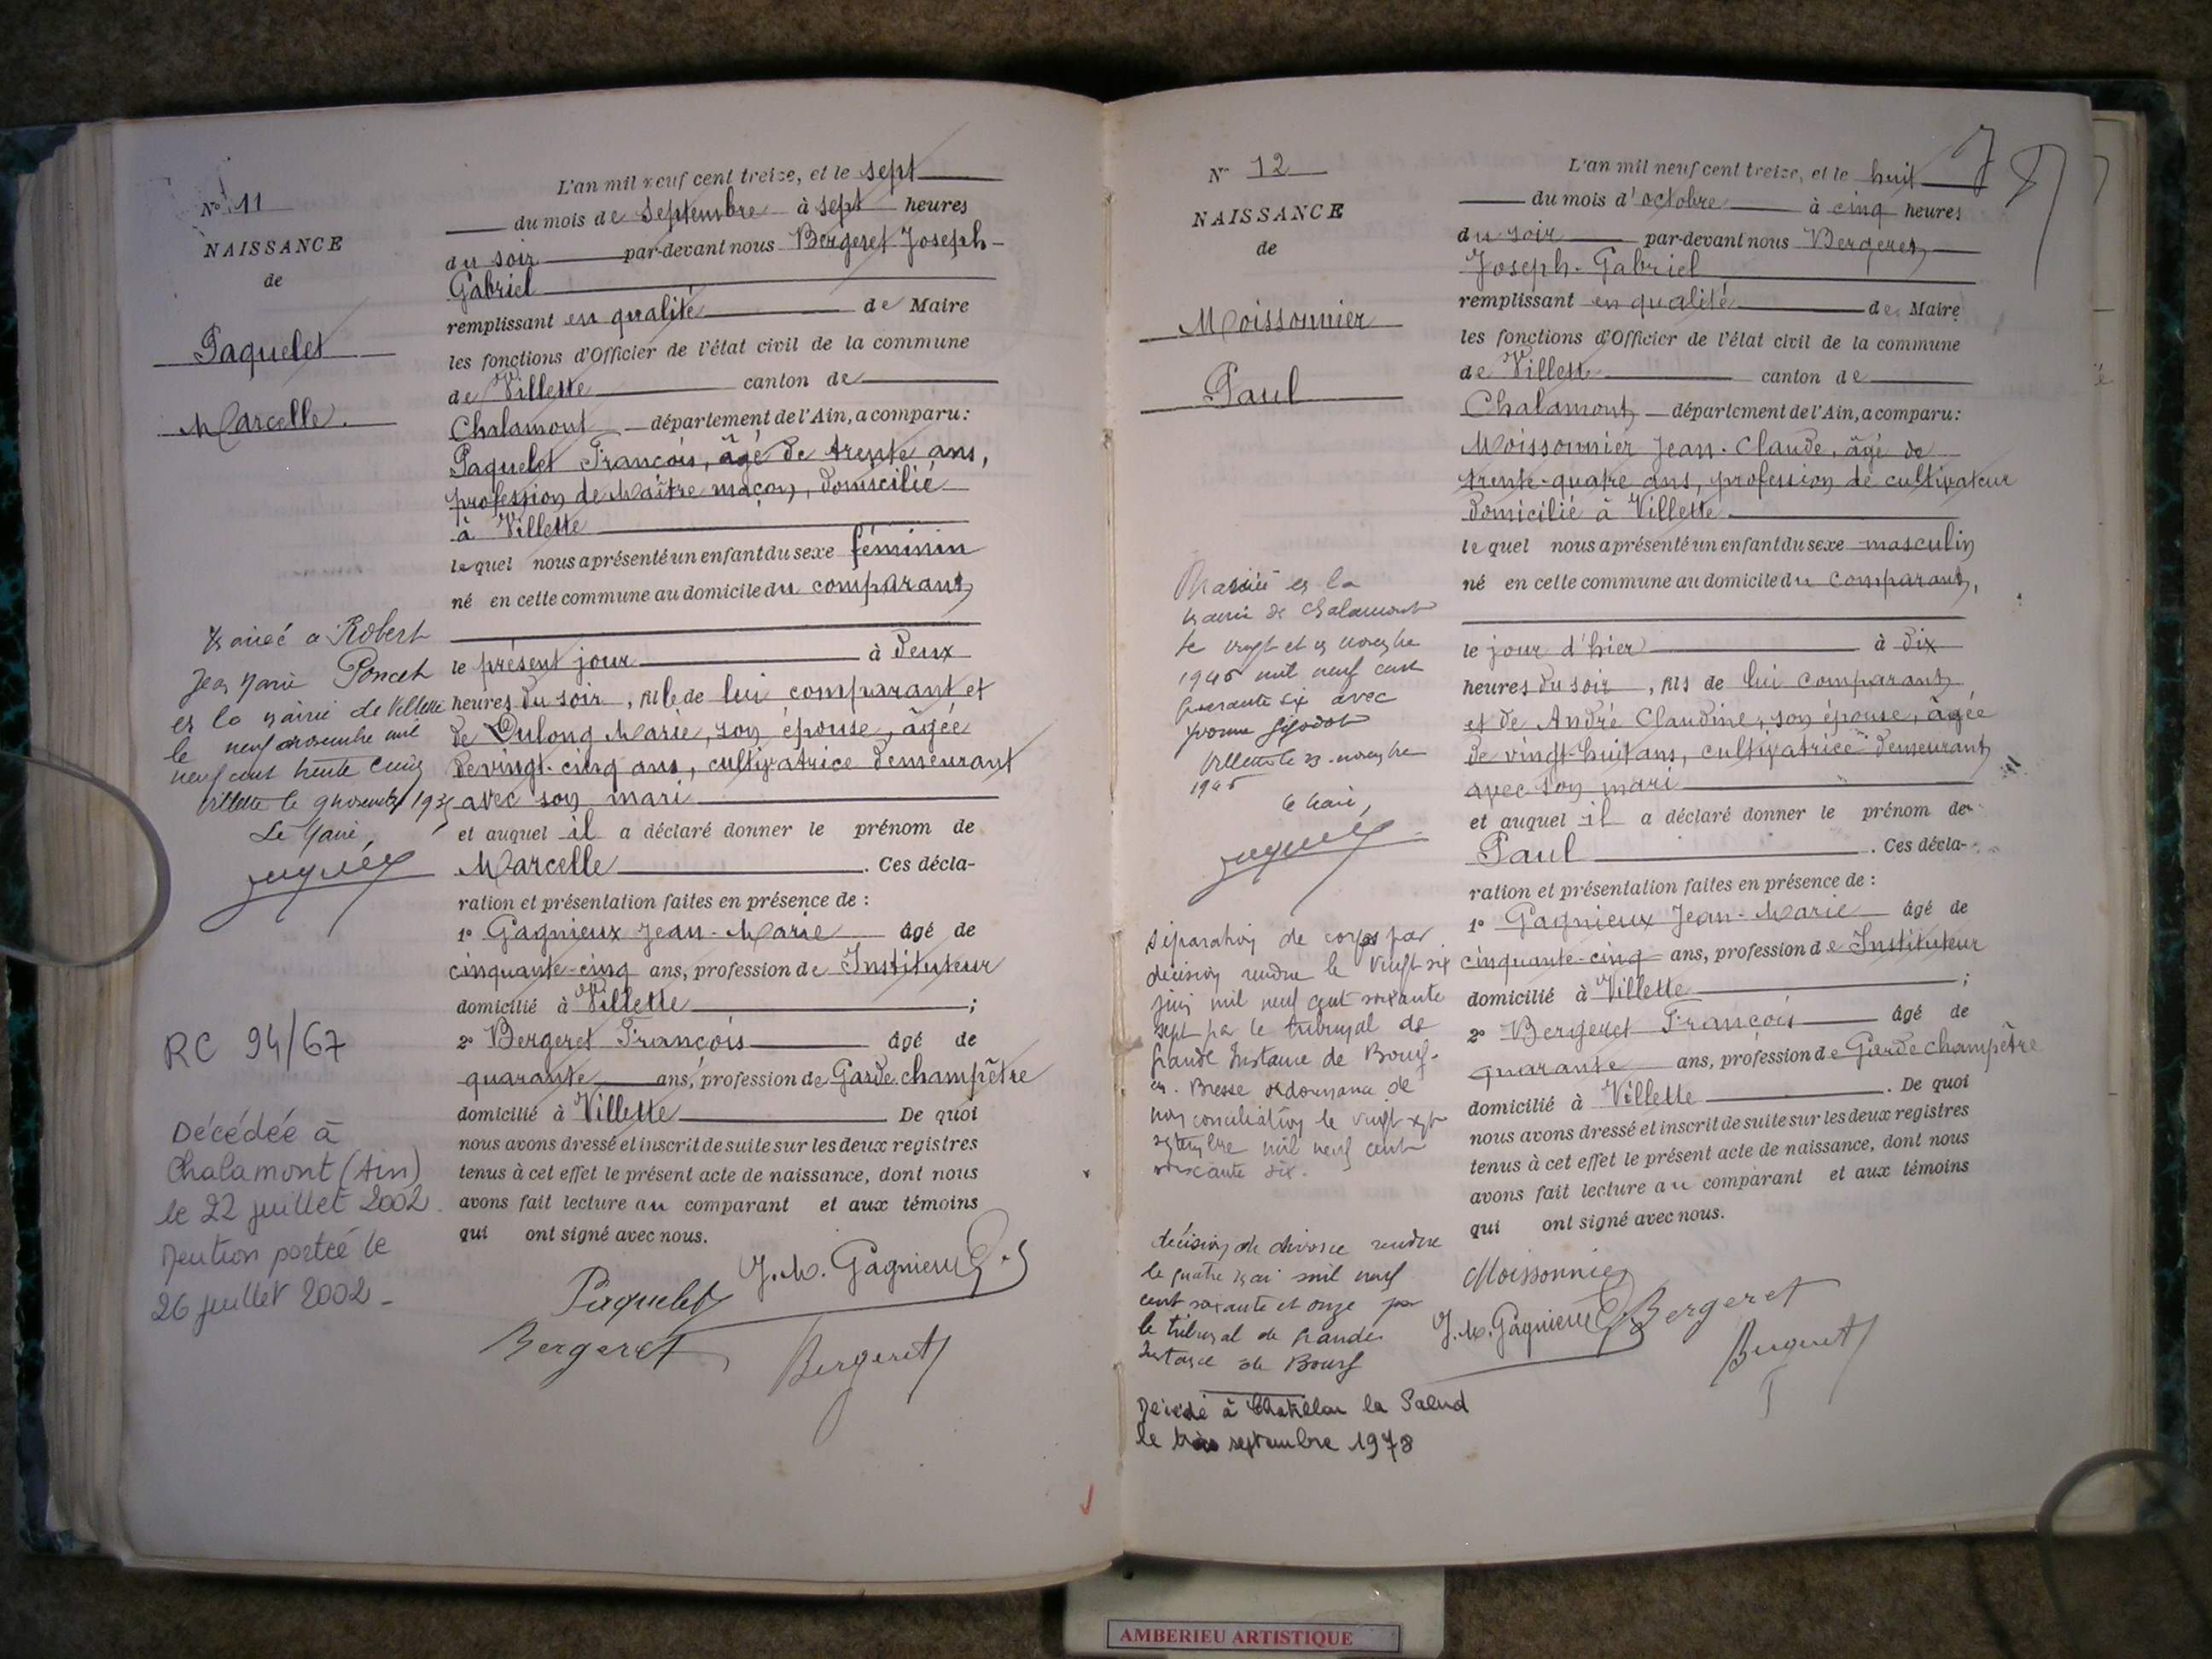 N° 11
NAISSANCE
de
Paquelet
Marcelle.
L'an mil neuf cent treize, et le sept
du mois de Septembre à sept heures
du soir par-devant nous Bergeret Joseph-
Gabriel
remplissant en qualité de Maire
les fonctions d'Officier de l'état civil de la commune
de Villette canton de
Chalamont département de l'Ain, a comparu:
Paquelet François, âgé de trente ans,
profession de Maître maçon, domicilié
à Villette
lequel nous a présenté un enfant du sexe féminin
né en cette commune au domicile du comparant,
le présent jour à deux
heures du soir, fille de lui comparant et
de Dulong Marie, son épouse, âgée
de vingt-cinq ans, cultivatrice demeurant
avec son mari
et auquel il a déclaré donner le prénom de
Marcelle. Ces décla-
ration et présentation faites en présence de :
1° Gagnieux Jean-Marie âgé de
cinquante-cinq ans, profession de Instituteur
domicilié à Villette ;
2° Bergeret François âgé de
quarante ans, profession de Garde champêtre
domicilié à Villette De quoi
nous avons dressé et inscrit de suite sur les deux registres
tenus à cet effet le présent acte de naissance, dont nous
avons fait lecture au comparant et aux témoins
qui ont signé avec nous.
Paquelet J. M. Gagnieux
Bergeret Bergeret
Robert
Jean Marie Poncet
la mairie de Villette
le neuf novembre mil
neuf cent trente cinq
Villette le 9 novembre 1935
Le Maire,
RC 94/67
Décédée à
Chalamont (Ain)
le 22 juillet 2002.
Mention portée le
26 juillet 2002 -
N° 12
NAISSANCE
de
Moissonnier
Paul
L'an mil neuf cent treize, et le huit
du mois d'octobre à cinq heures
du soir par-devant nous Bergeret
Joseph-Gabriel
remplissant en qualité de Maire
les fonctions d'Officier de l'état civil de la commune
de Villette canton de
Chalamont département de l'Ain, a comparu:
Moissonnier Jean-Claude, âgé de
trente-quatre ans, profession de cultivateur
domicilié à Villette
lequel nous a présenté un enfant du sexe masculin
né en cette commune au domicile du comparant,
le jour d'hier à dix
heures du soir, fils de lui comparant
et de André Claudine, son épouse, âgée
de vingt-huit ans, cultivatrice demeurant
avec son mari
et auquel il a déclaré donner le prénom de
Paul. Ces décla-
ration et présentation faites en présence de :
1° Gagnieux Jean-Marie âgé de
cinquante-cinq ans, profession de Instituteur
domicilié à Villette ;
2° Bergeret François âgé de
quarante ans, profession de Garde champêtre
domicilié à Villette. De quoi
nous avons dressé et inscrit de suite sur les deux registres
tenus à cet effet le présent acte de naissance, dont nous
avons fait lecture au comparant et aux témoins
qui ont signé avec nous.
Moissonnier
J. M. Gagnieux Bergeret
Bergeret
la
mairie de Chalamont
le vingt et novembre
mil neuf cent
quarante six avec
Yvonne
Villette le 23 novembre
Le Maire,
Séparation de corps par
décision rendue le vingt six
juin mil neuf cent soixante
sept par le tribunal de
Grande Instance de Bourg-
en-Bresse ordonnance de
non conciliation le vingt sept
septembre mil neuf cent
soixante six.
décision de divorce rendue
le quatre mai mil neuf
cent soixante et onze par
le tribunal de Grande
Instance de Bourg
Décédé à Chatillon la Palud
le trois septembre 1978
AMBERIEU ARTISTIQUE